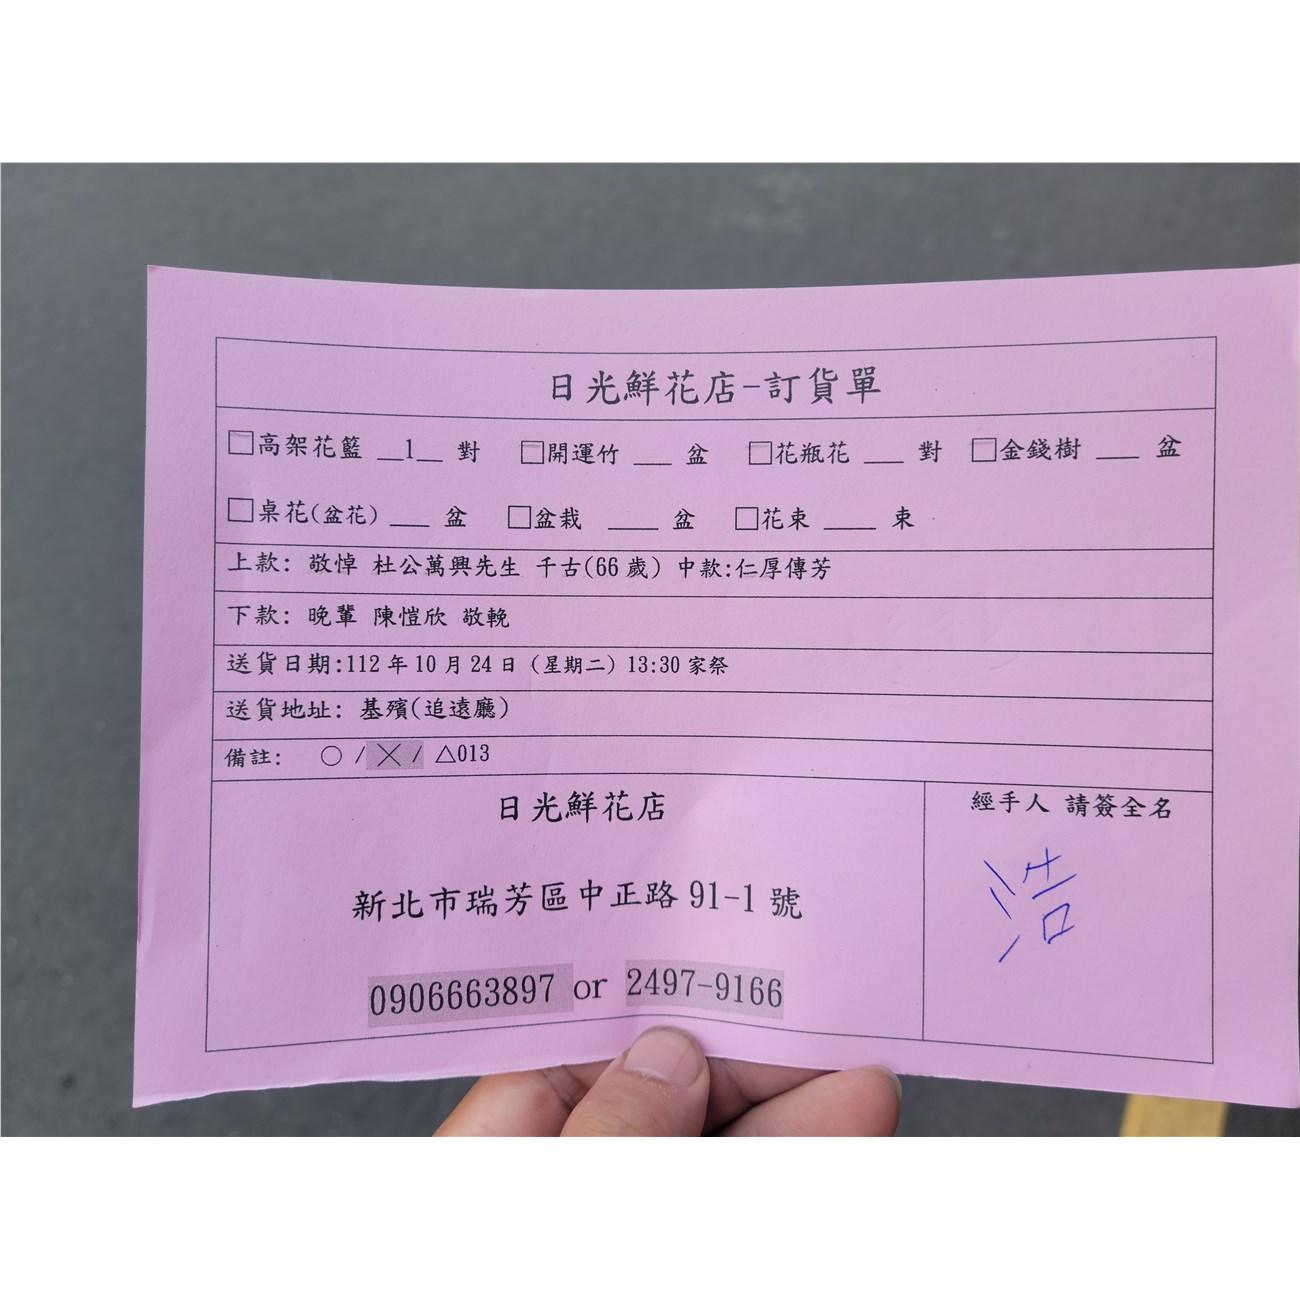 日光鮮花店-訂貨單
□高架花籃 __1__ 對 □開運竹 ___ 盆 □花瓶花 ___ 對 □金錢樹 ___ 盆
□桌花(盆花) ___ 盆 □盆栽 ____ 盆 □花束 ____ 束
上款: 敬悼 杜公萬興先生 千古(66 歲) 中款:仁厚傳芳
下款: 晚輩 陳愷欣 敬輓
送貨日期:112 年 10 月 24 日 (星期二) 13:30 家祭
送貨地址: 基殯(追遠廳)
備註: ○ / ╳ / △013
日光鮮花店
新北市瑞芳區中正路 91-1 號
0906663897 or 2497-9166
經手人 請簽全名
浩